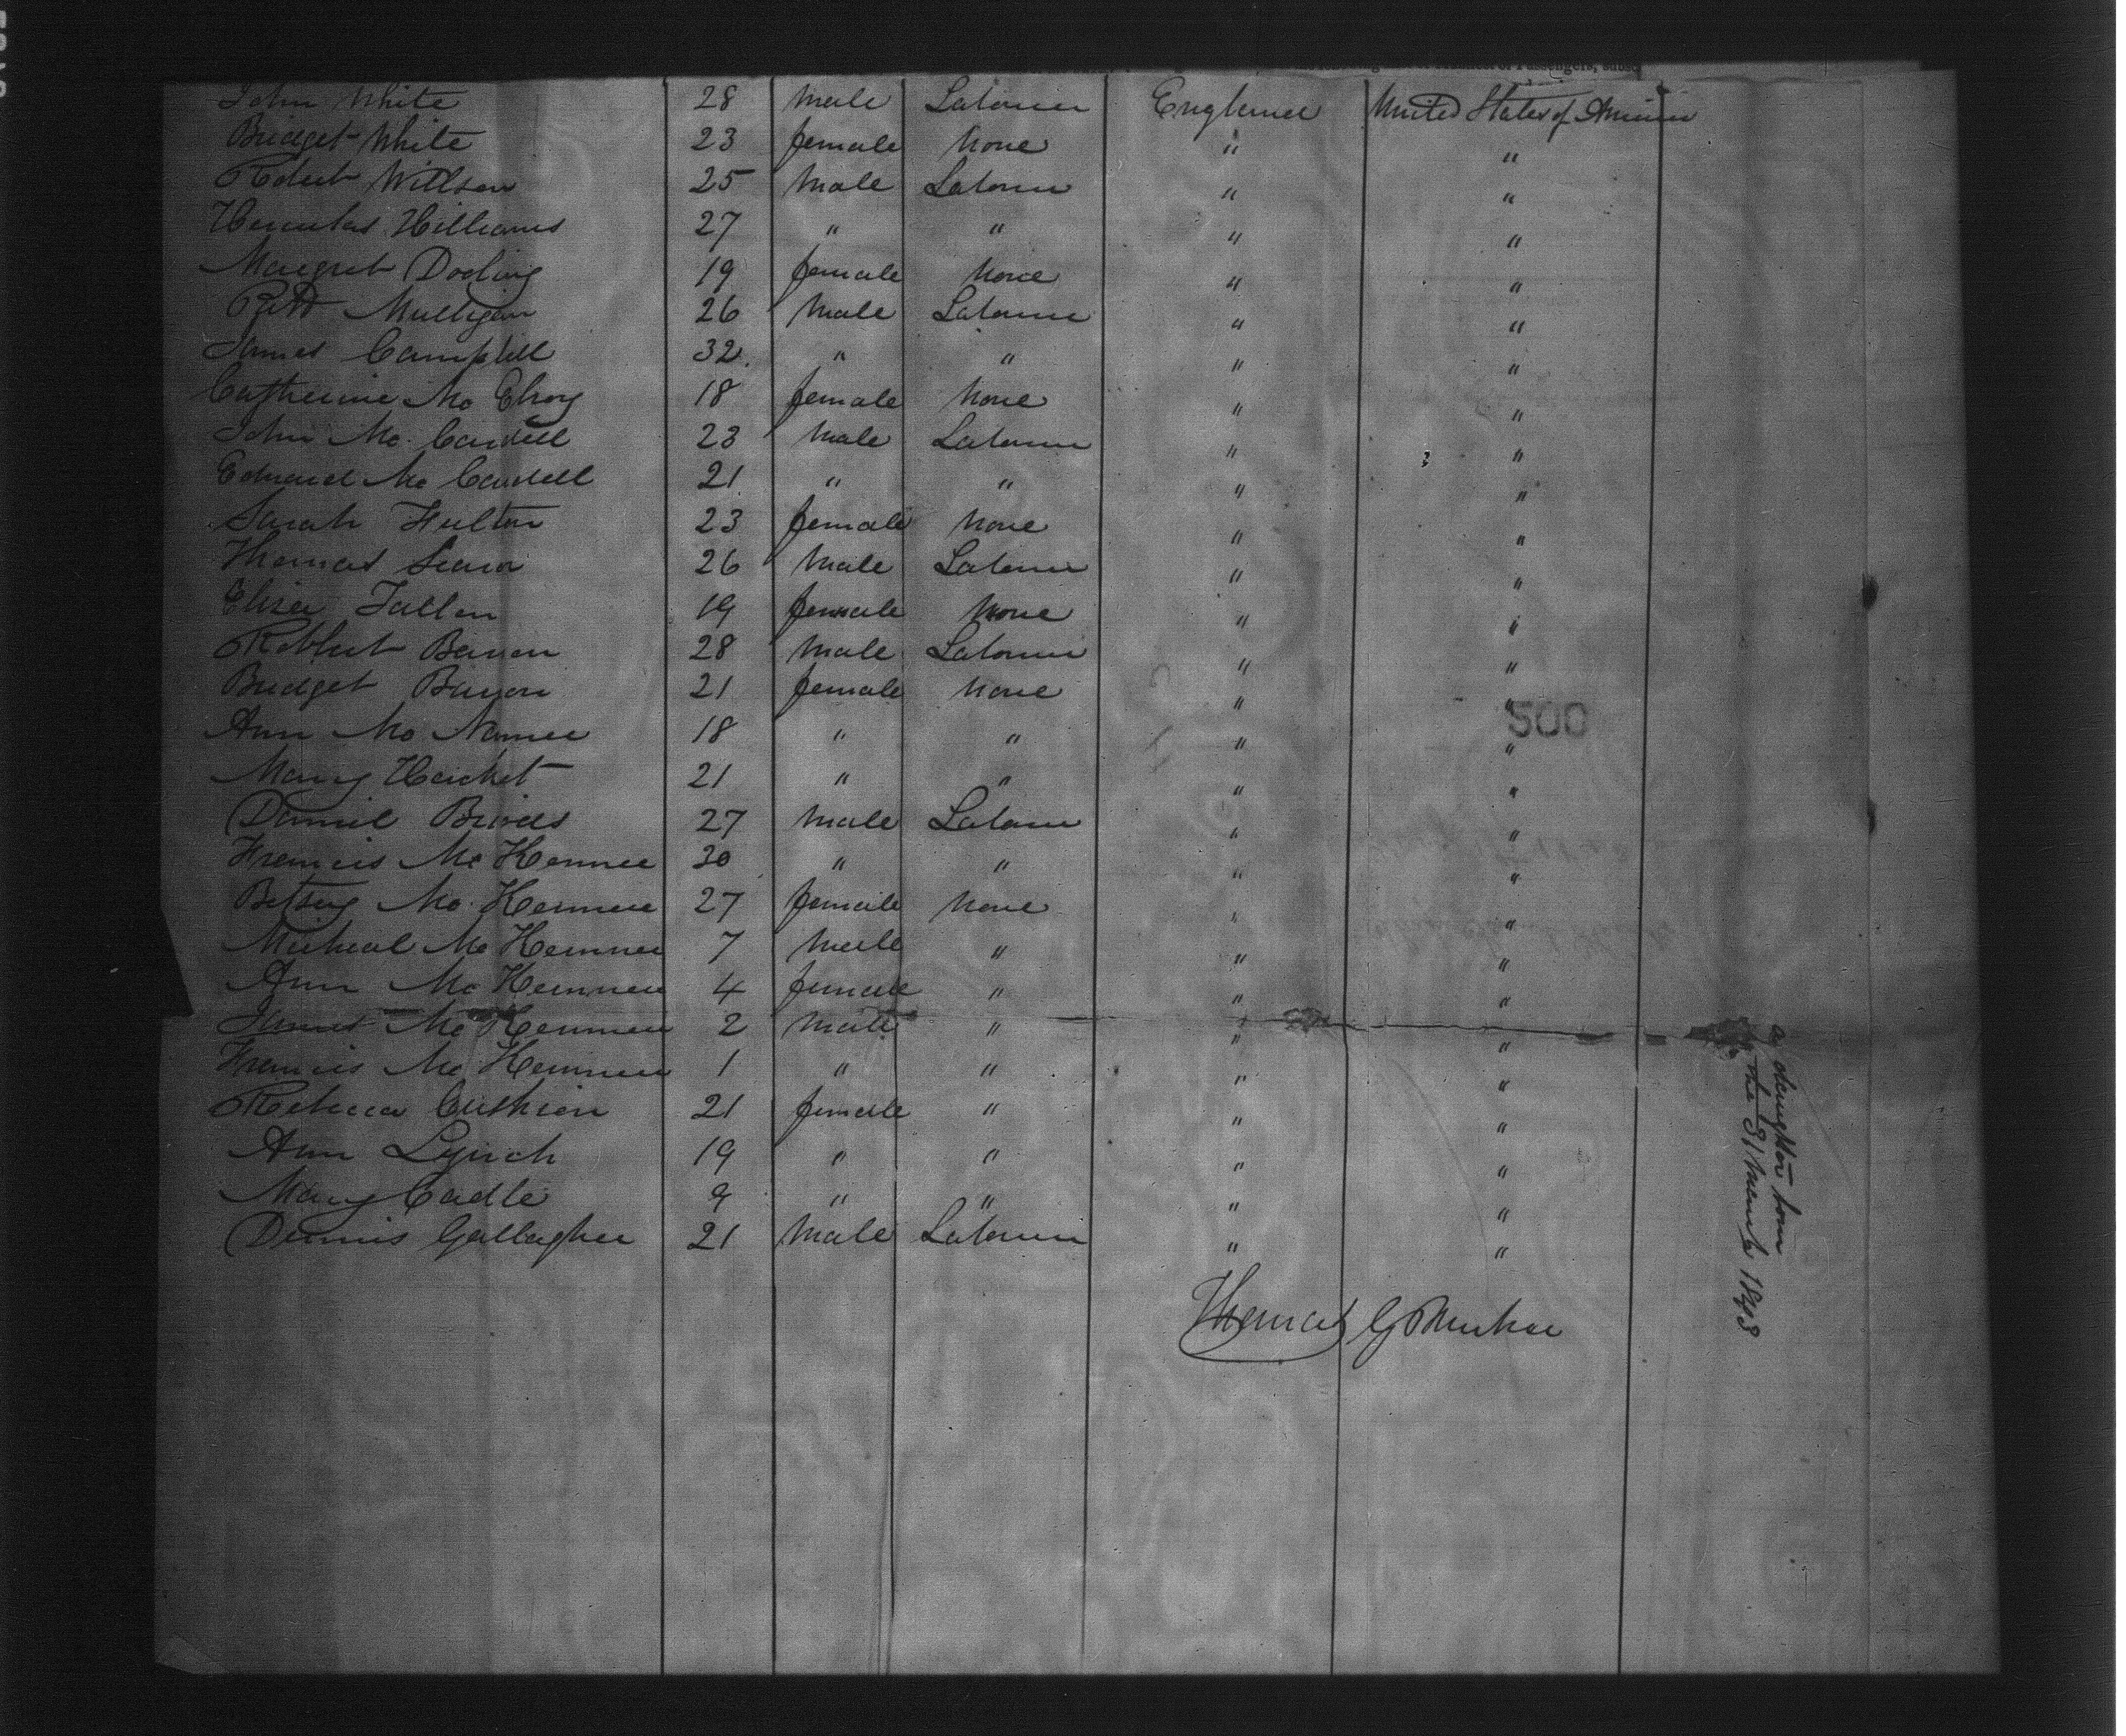 John White 28 Male Laborer England United States of America
Bridget White 23 female None " "
Robert Willson 25 Male Laborer " "
Hercules Williams 27 " " " "
Margret Dooling 19 female None " "
Mulligan 26 Male Laborer " "
James Campbell 32 " " " "
Catherine Mc Elroy 18 female None " "
John Mc 23 Male Laborer " "
Edward Mc 21 " " " "
Sarah Fulton 23 female None " "
Thomas 26 Male Laborer " "
Eliza Fallon 19 female None " "
Robbert Barron 28 Male Laborer " "
Bridget Barron 21 female None " "
Ann Mc Namee 18 " " " "
Mary Hacket 21 " " " "
Daniel 27 Male Laborer " "
500
Francis Mc Kennee 30 " " " "
Betsey Mc Kennee 27 female None " "
Micheal Mc Kennee 7 Male " " "
Ann Mc Kennee 4 female " " "
James Mc Kennee 2 Male " " "
Francis Mc Kennee 1 " " " "
Rebecca Cushion 21 female " " "
Ann Lynch 19 " " " "
Mary Cadle 9 " " " "
Dennis Gallagher 21 Male Laborer " "
Thomas G
a daughter born
the 31 March 1843